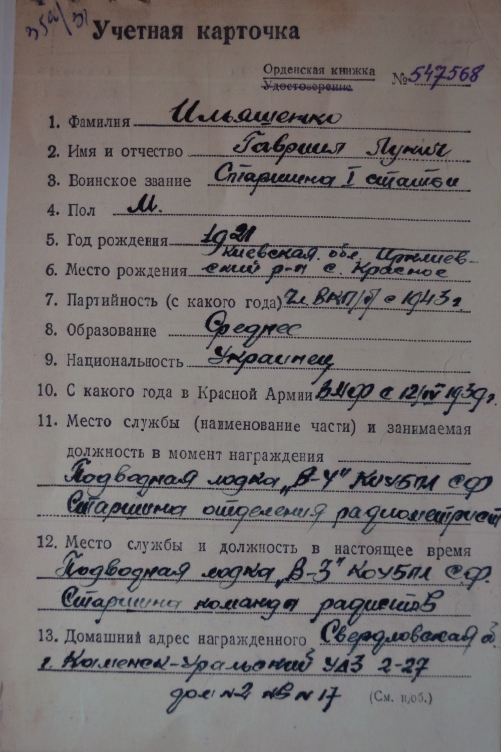 Учетная карточка
Орденская книжка
Удостоверение
№ 547568
1. Фамилия Ильяшенко
2. Имя и отчество Гавриил Лукич
3. Воинское звание Старшина I статьи
4. Пол М.
5. Год рождения 1921
Киевская обл. Ирклиев-
6. Место рождения ский р-н с. Красное
7. Партийность (с какого года) Чл. ВКП/б/ с 1943 г.
8. Образование Среднее
9. Национальность Украинец
10. С какого года в Красной Армии ВМФ с 12/IV 1939г.
11. Место службы (наименование части) и занимаемая
должность в момент награждения
Подводная лодка „В-4" КОУБПЛ СФ
Старшина отделения радиометрист
12. Место службы и должность в настоящее время
Подводная лодка „В-3" КОУБПЛ С.Ф.
Старшина команды радистов
13. Домашний адрес награжденного Свердловская о.
г. Каменск-Уральский УАЗ 2-27
дом №2 кв №17
(См. н/об.)